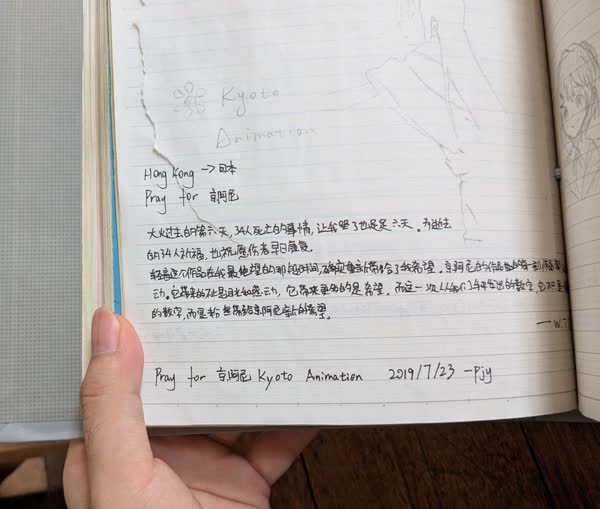 Kyoto
Animation
Hong Kong -> 日本
Pray for 京阿尼
大火过去的第六天，34人死亡的事情，让我哭了也是足六天。为逝去
的34人祈福，也祝愿伤者早日康复。
轻音这个作品在我最绝望的那段时间 带给了我希望。京阿尼的作品
动。它带来的不止是泪水和感动，它带来更多的是希望。而这一次
的数字，而是 希望。
— W.T
Pray for 京阿尼 Kyoto Animation 2019/7/23 -Pjy